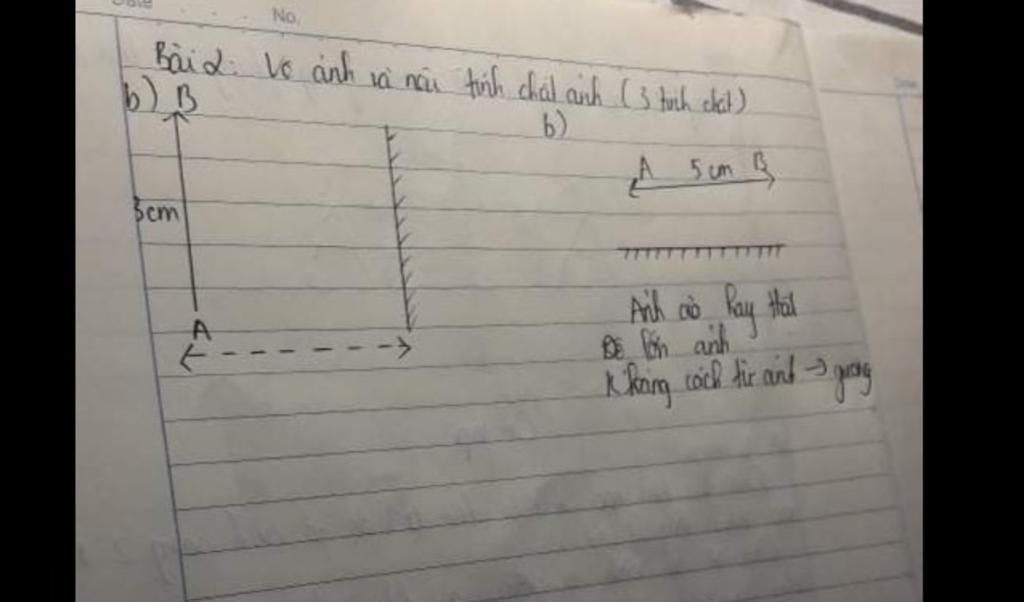 No.
Bài 2: Vẽ ảnh và nêu tính chất ảnh (3 tính chất)
b) B
b)
A 5cm B
3cm
Ảnh ảo hay thật
Độ lớn ảnh
A
Khoảng cách từ ảnh → gương